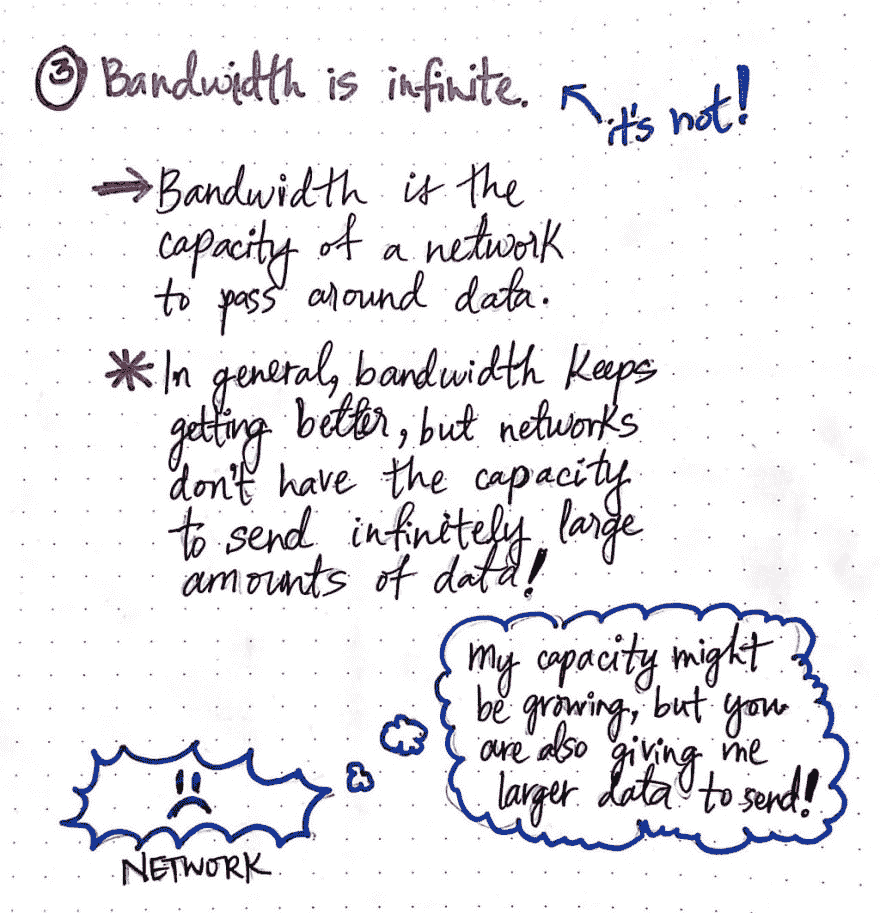 ③ Bandwidth is infinite.
it's not!
Bandwidth is the
capacity of a network
to pass around data.
* In general, bandwidth keeps
getting better, but networks
don't have the capacity
to send infinitely large
amounts of data!
My capacity might
be growing, but you
are also giving me
larger data to send!
NETWORK